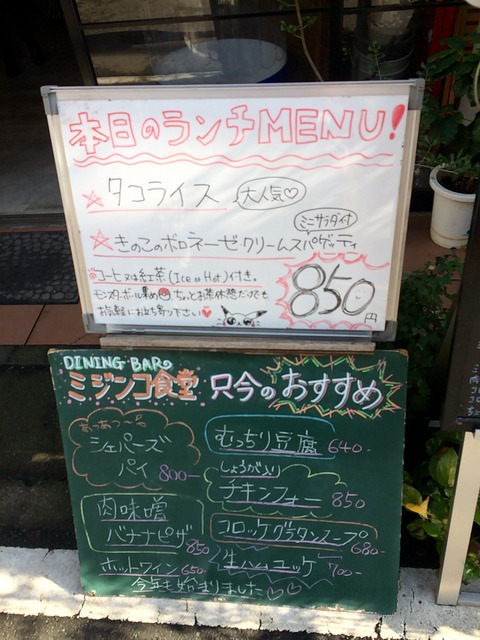 本日のランチMENU!
☆タコライス 大人気♡
ミニサラダ付
☆きのこのボロネーゼクリームスパゲッティ
コーヒー又は紅茶(Ice or Hot)付き。
モンスターボール集め ちょっとお茶休憩だけでも
お気軽にお立ち寄り下さい♥
850円
DINING BARの
ミジンコ食堂 只今のおすすめ
あつあつ〜
シェパーズ
パイ 800-
肉味噌
バナナピザ 850
ホットワイン 650
むっちり豆腐 640-
しょうが入り
チキンフォー 850
コロッケグラタンスープ 680-
生ハムユッケ 700-
今年も始まりました♡♡